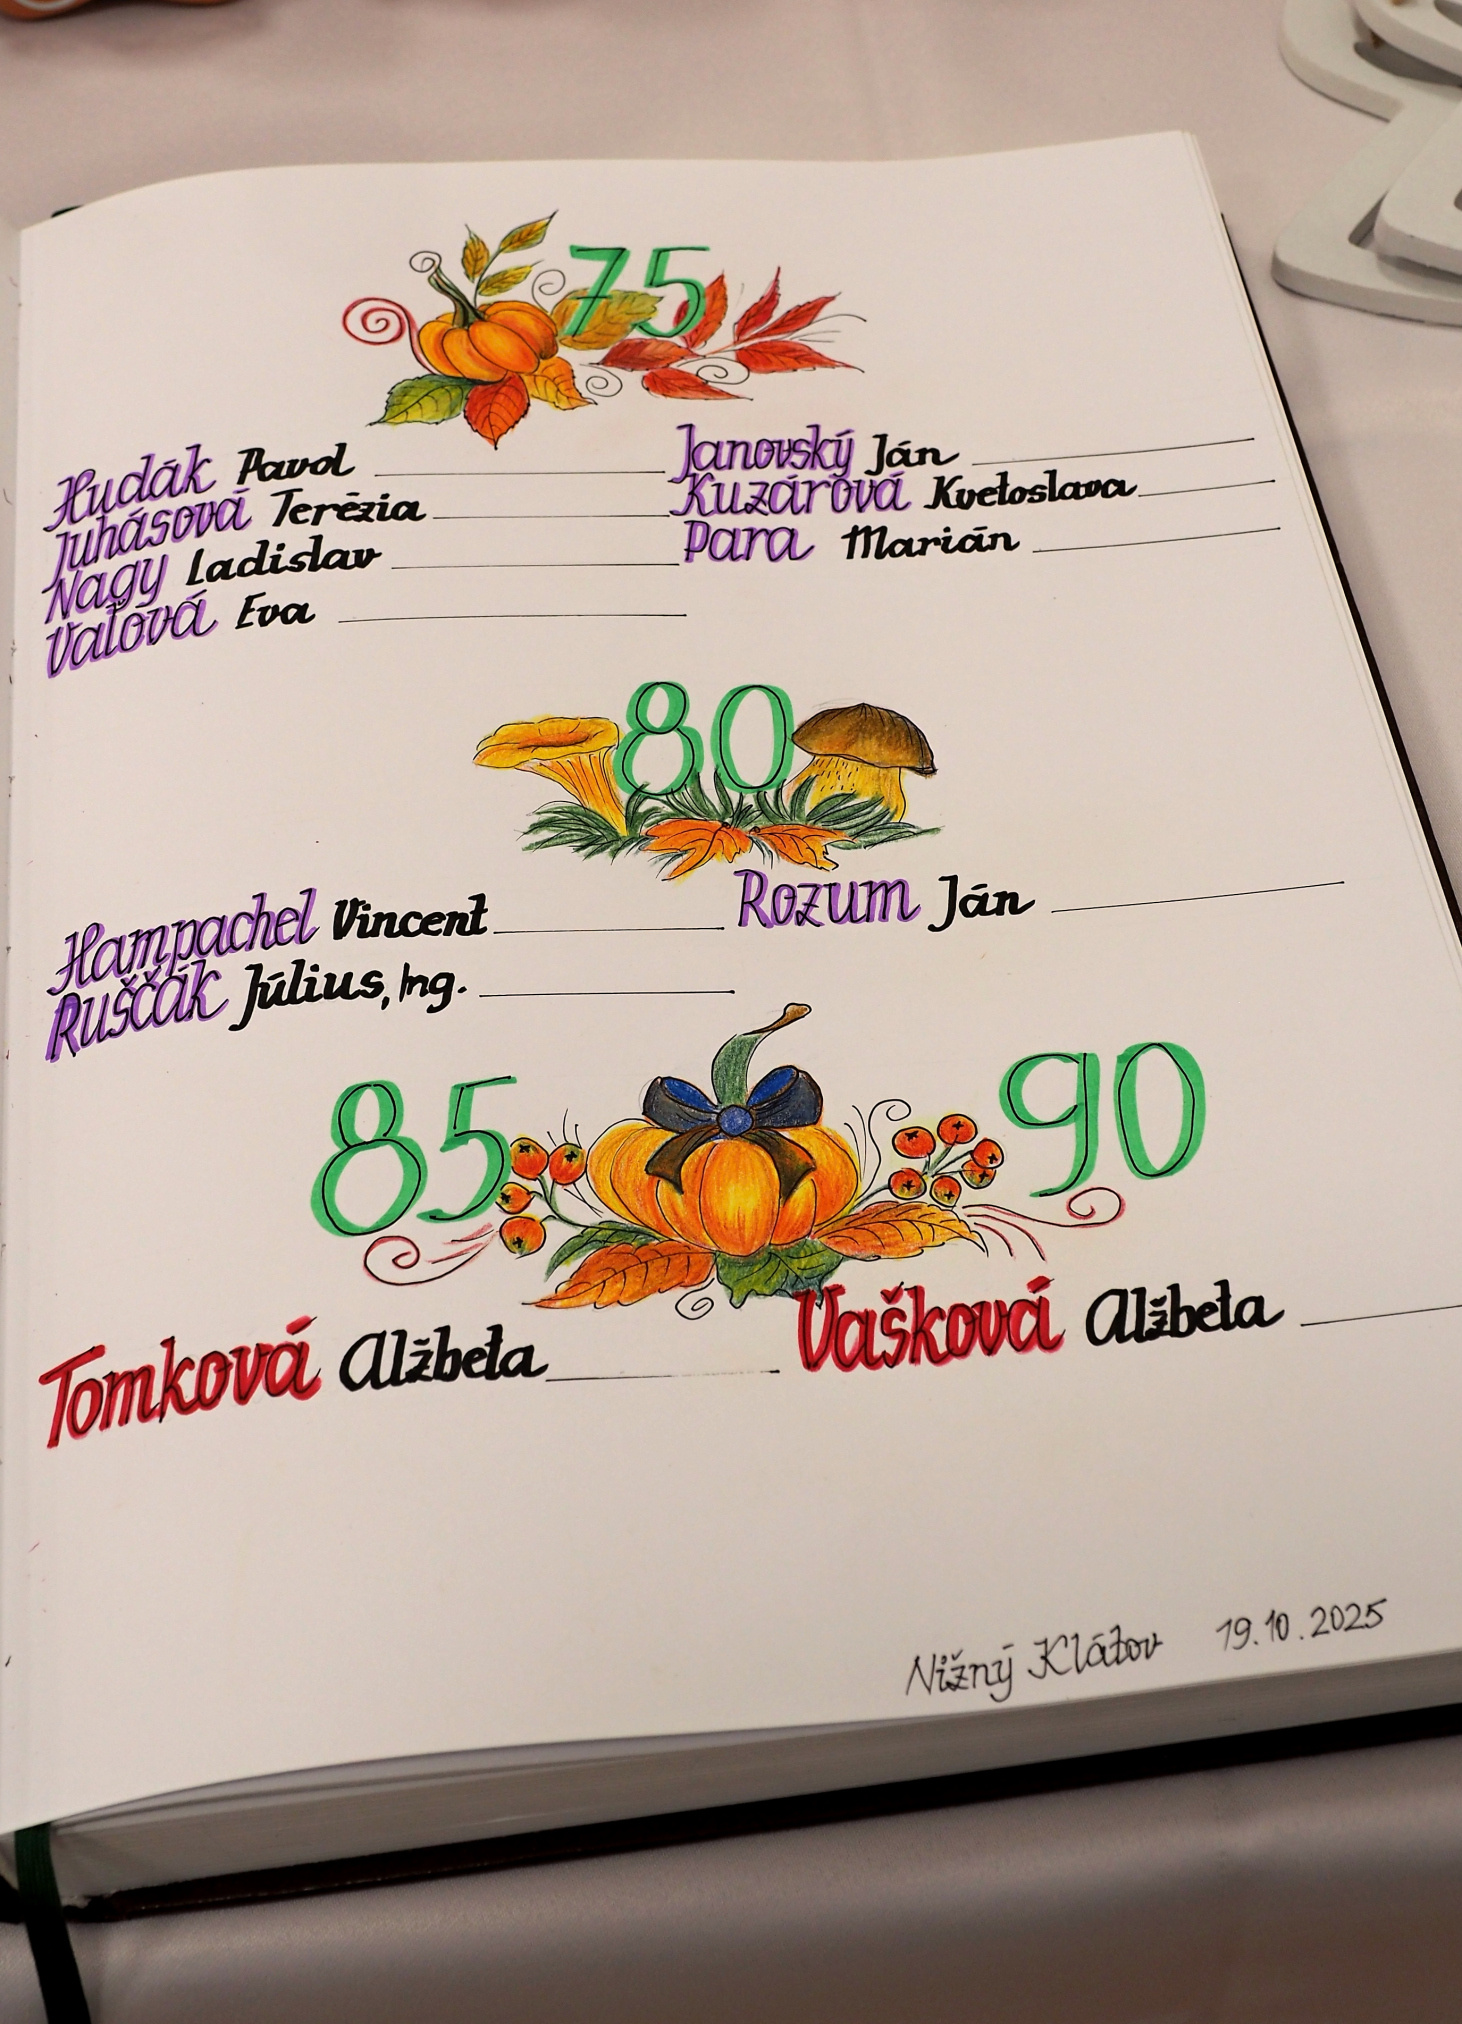 75
Hudák Pavol Janovský Ján
Juhásová Terézia Kuzárová Kvetoslava
Nagy Ladislav Para Marián
Vaľová Eva
80
Hampachel Vincent Rozum Ján
Ruščák Július, Ing.
85 90
Tomková Alžbeta Vašková Alžbeta
Nižný Klátov 19.10.2025